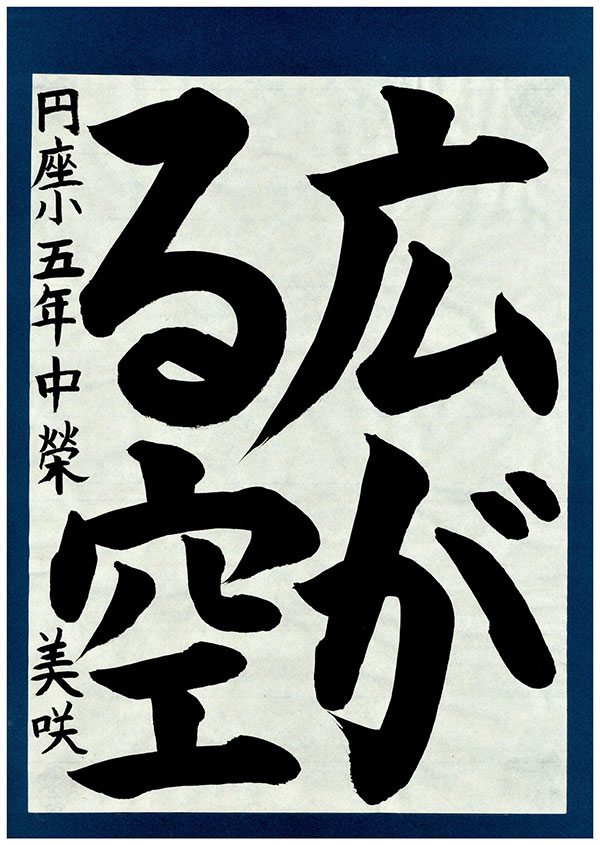 広が
る空
円座小五年中榮美咲